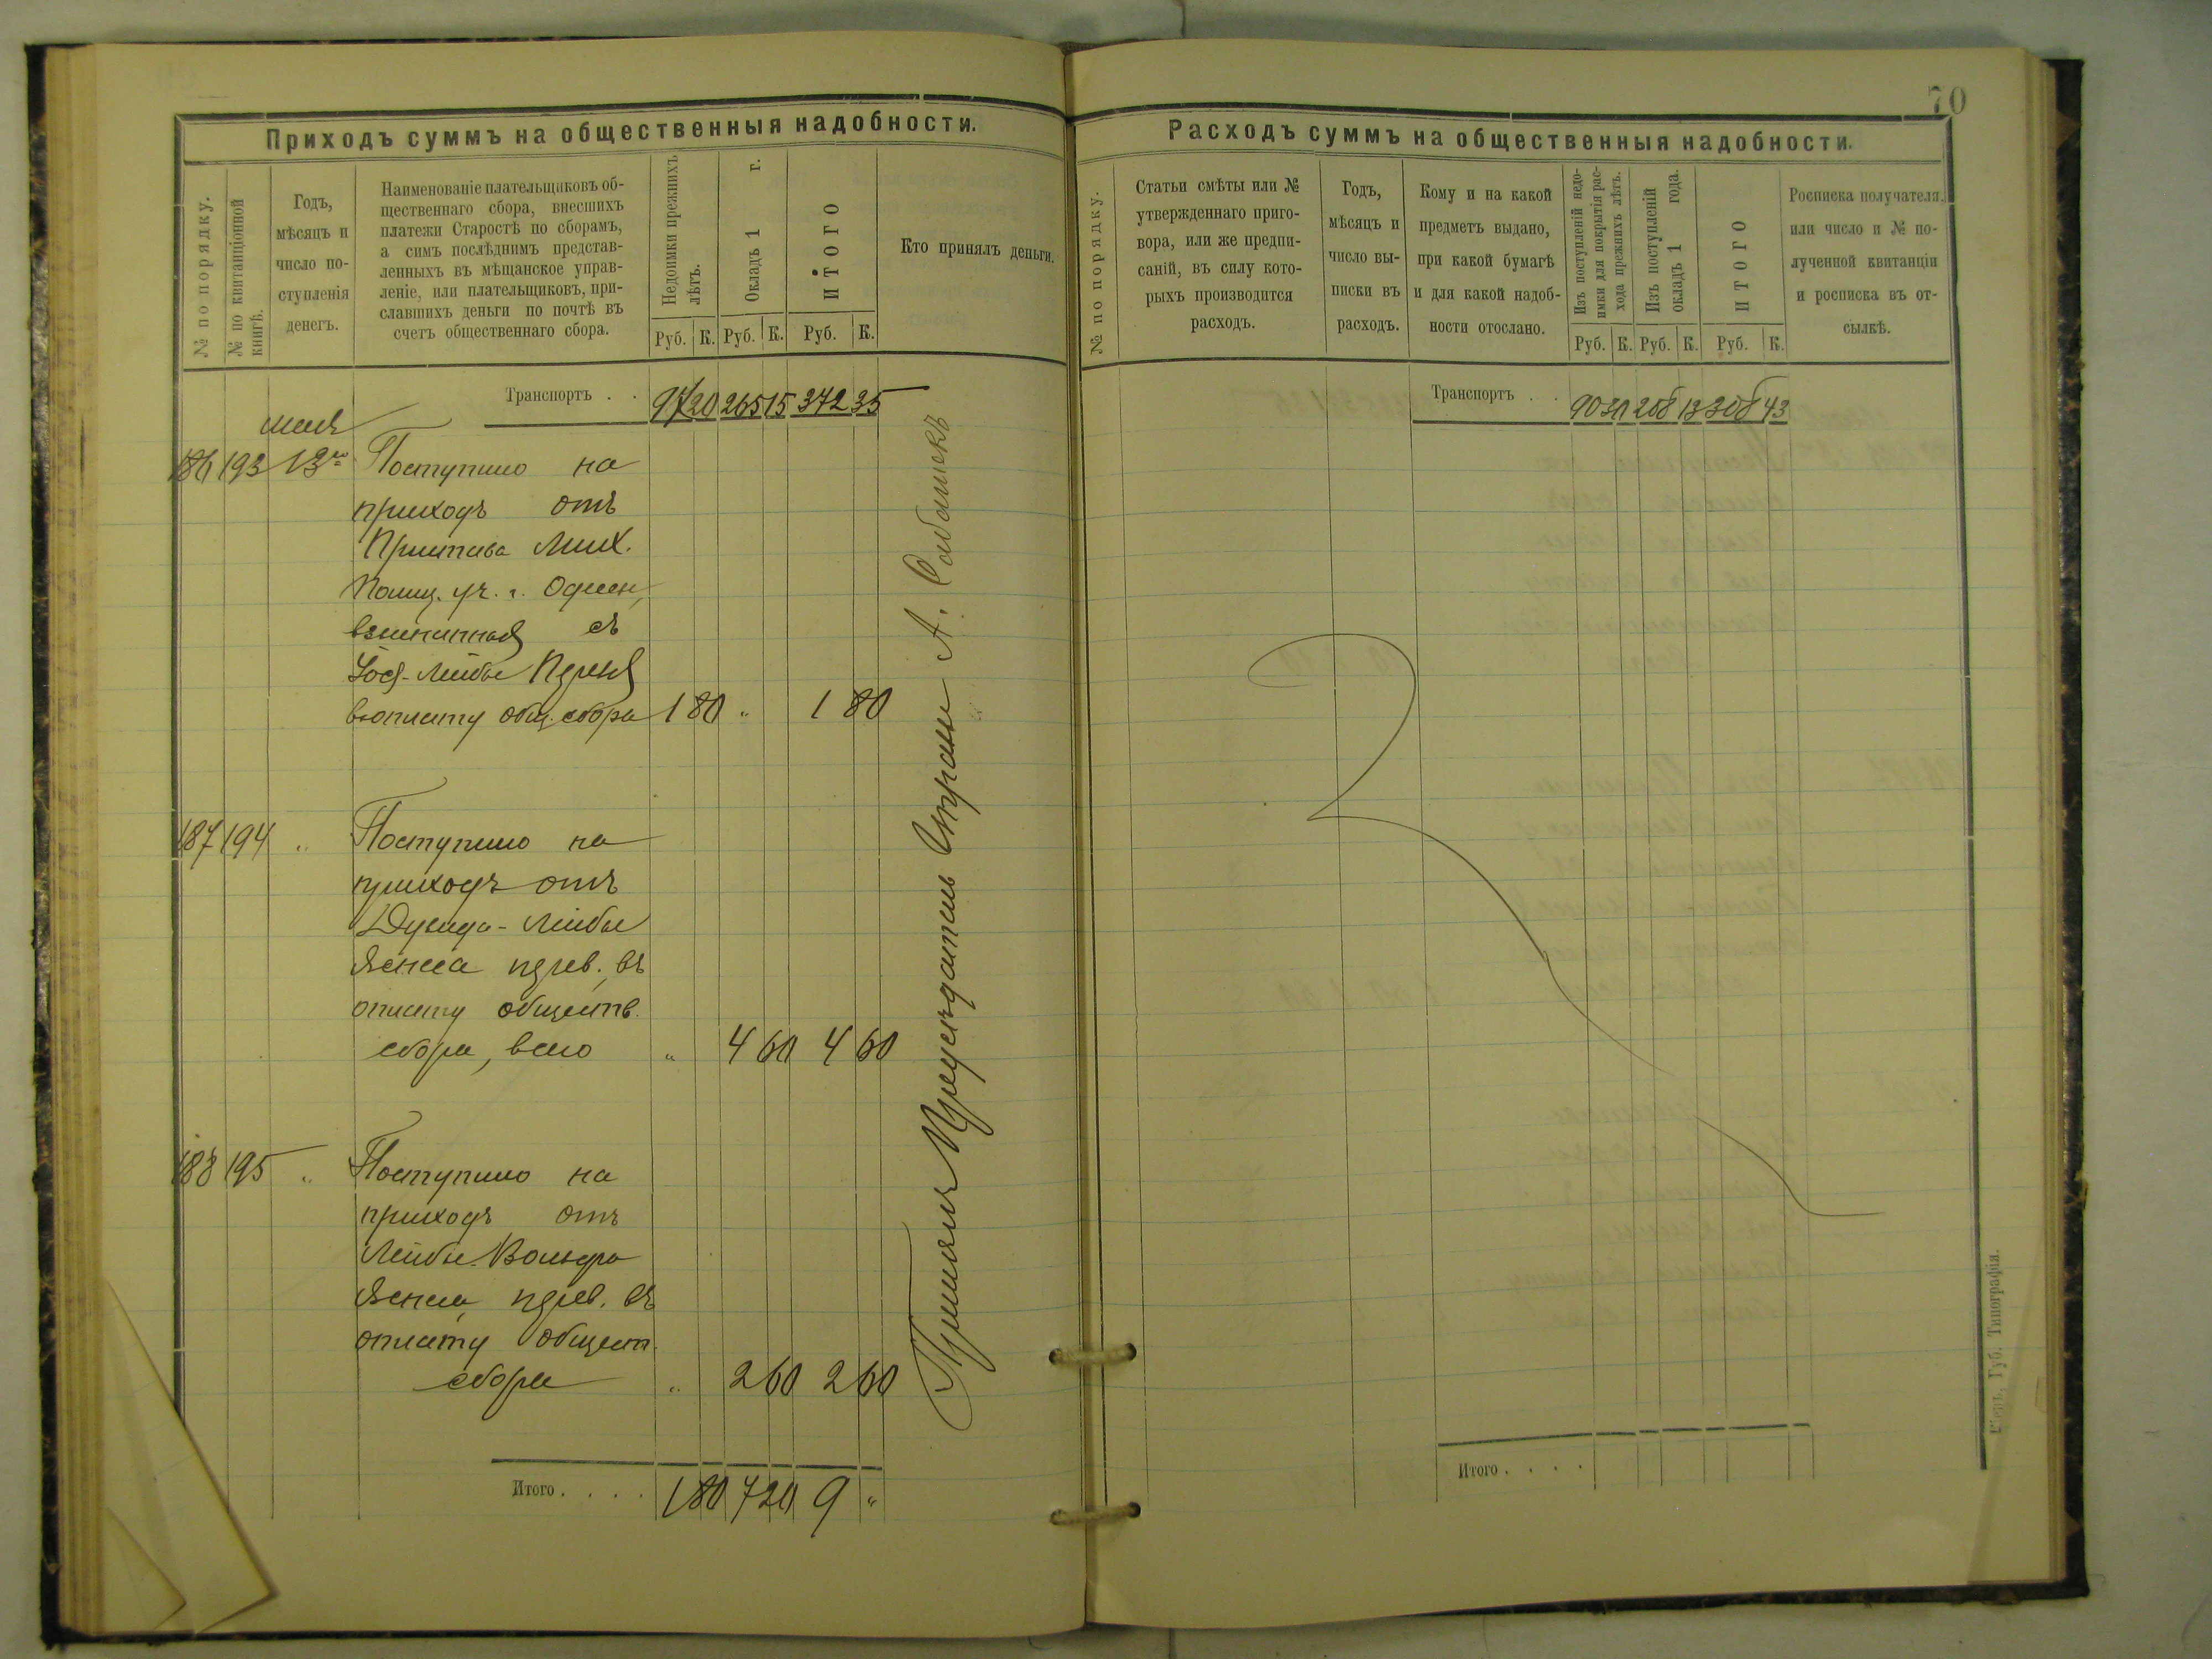 Приходъ суммъ на общественныя надобности.
№ по порядку.
№ по квитанціонной
книгѣ.
Годъ,
мѣсяцъ и
число по-
ступленія
денегъ.
Наименованіе плательщиковъ об-
щественнаго сбора, внесшихъ
платежи Старостѣ по сборамъ,
а симъ послѣднимъ представ-
ленныхъ въ мѣщанское управ-
леніе, или плательщиковъ, при-
славшихъ деньги по почтѣ въ
счетъ общественнаго сбора.
Недоимки прежнихъ
лѣтъ.
Окладъ 1 г.
ИТОГО
Кто принялъ деньги.
Руб. К. Руб. К. Руб. К.
Транспортъ . . 20 265 15 372 35
мая
186 193 13го Поступило на
приходъ отъ
Пристава Мих.
Полиц. уч. г.
съ
Лейбы
общ. сбора 1 80 " 1 80
187 194 " Поступило на
приходъ отъ
Лейбы
въ
оплату обществ.
сбора, всего " 4 60 4 60
188 195 " Поступило на
приходъ отъ
Лейбы
въ
оплату общест.
сбора " 2 60 2 60
Итого . . . . 1 80 7 20 9 "
Принялъ Предсѣдатель Управы А.
70
Расходъ суммъ на общественныя надобности.
№ по порядку.
Статьи смѣты или №
утвержденнаго приго-
вора, или же предпи-
саній, въ силу кото-
рыхъ производится
расходъ.
Годъ,
мѣсяцъ и
число вы-
писки въ
расходъ.
Кому и на какой
предметъ выдано,
при какой бумагѣ
и для какой надоб-
ности отослано.
Изъ поступленій недо-
имки для покрытія рас-
хода прежнихъ лѣтъ.
Изъ поступленій
окладъ 1 года.
ИТОГО
Росписка получателя
или число и № по-
лученной квитанціи
и росписка въ от-
сылкѣ.
Руб. К. Руб. К. Руб. К.
Транспортъ . . 90 30 208 13 308 43
Итого . . . .
Губ. Типографія.